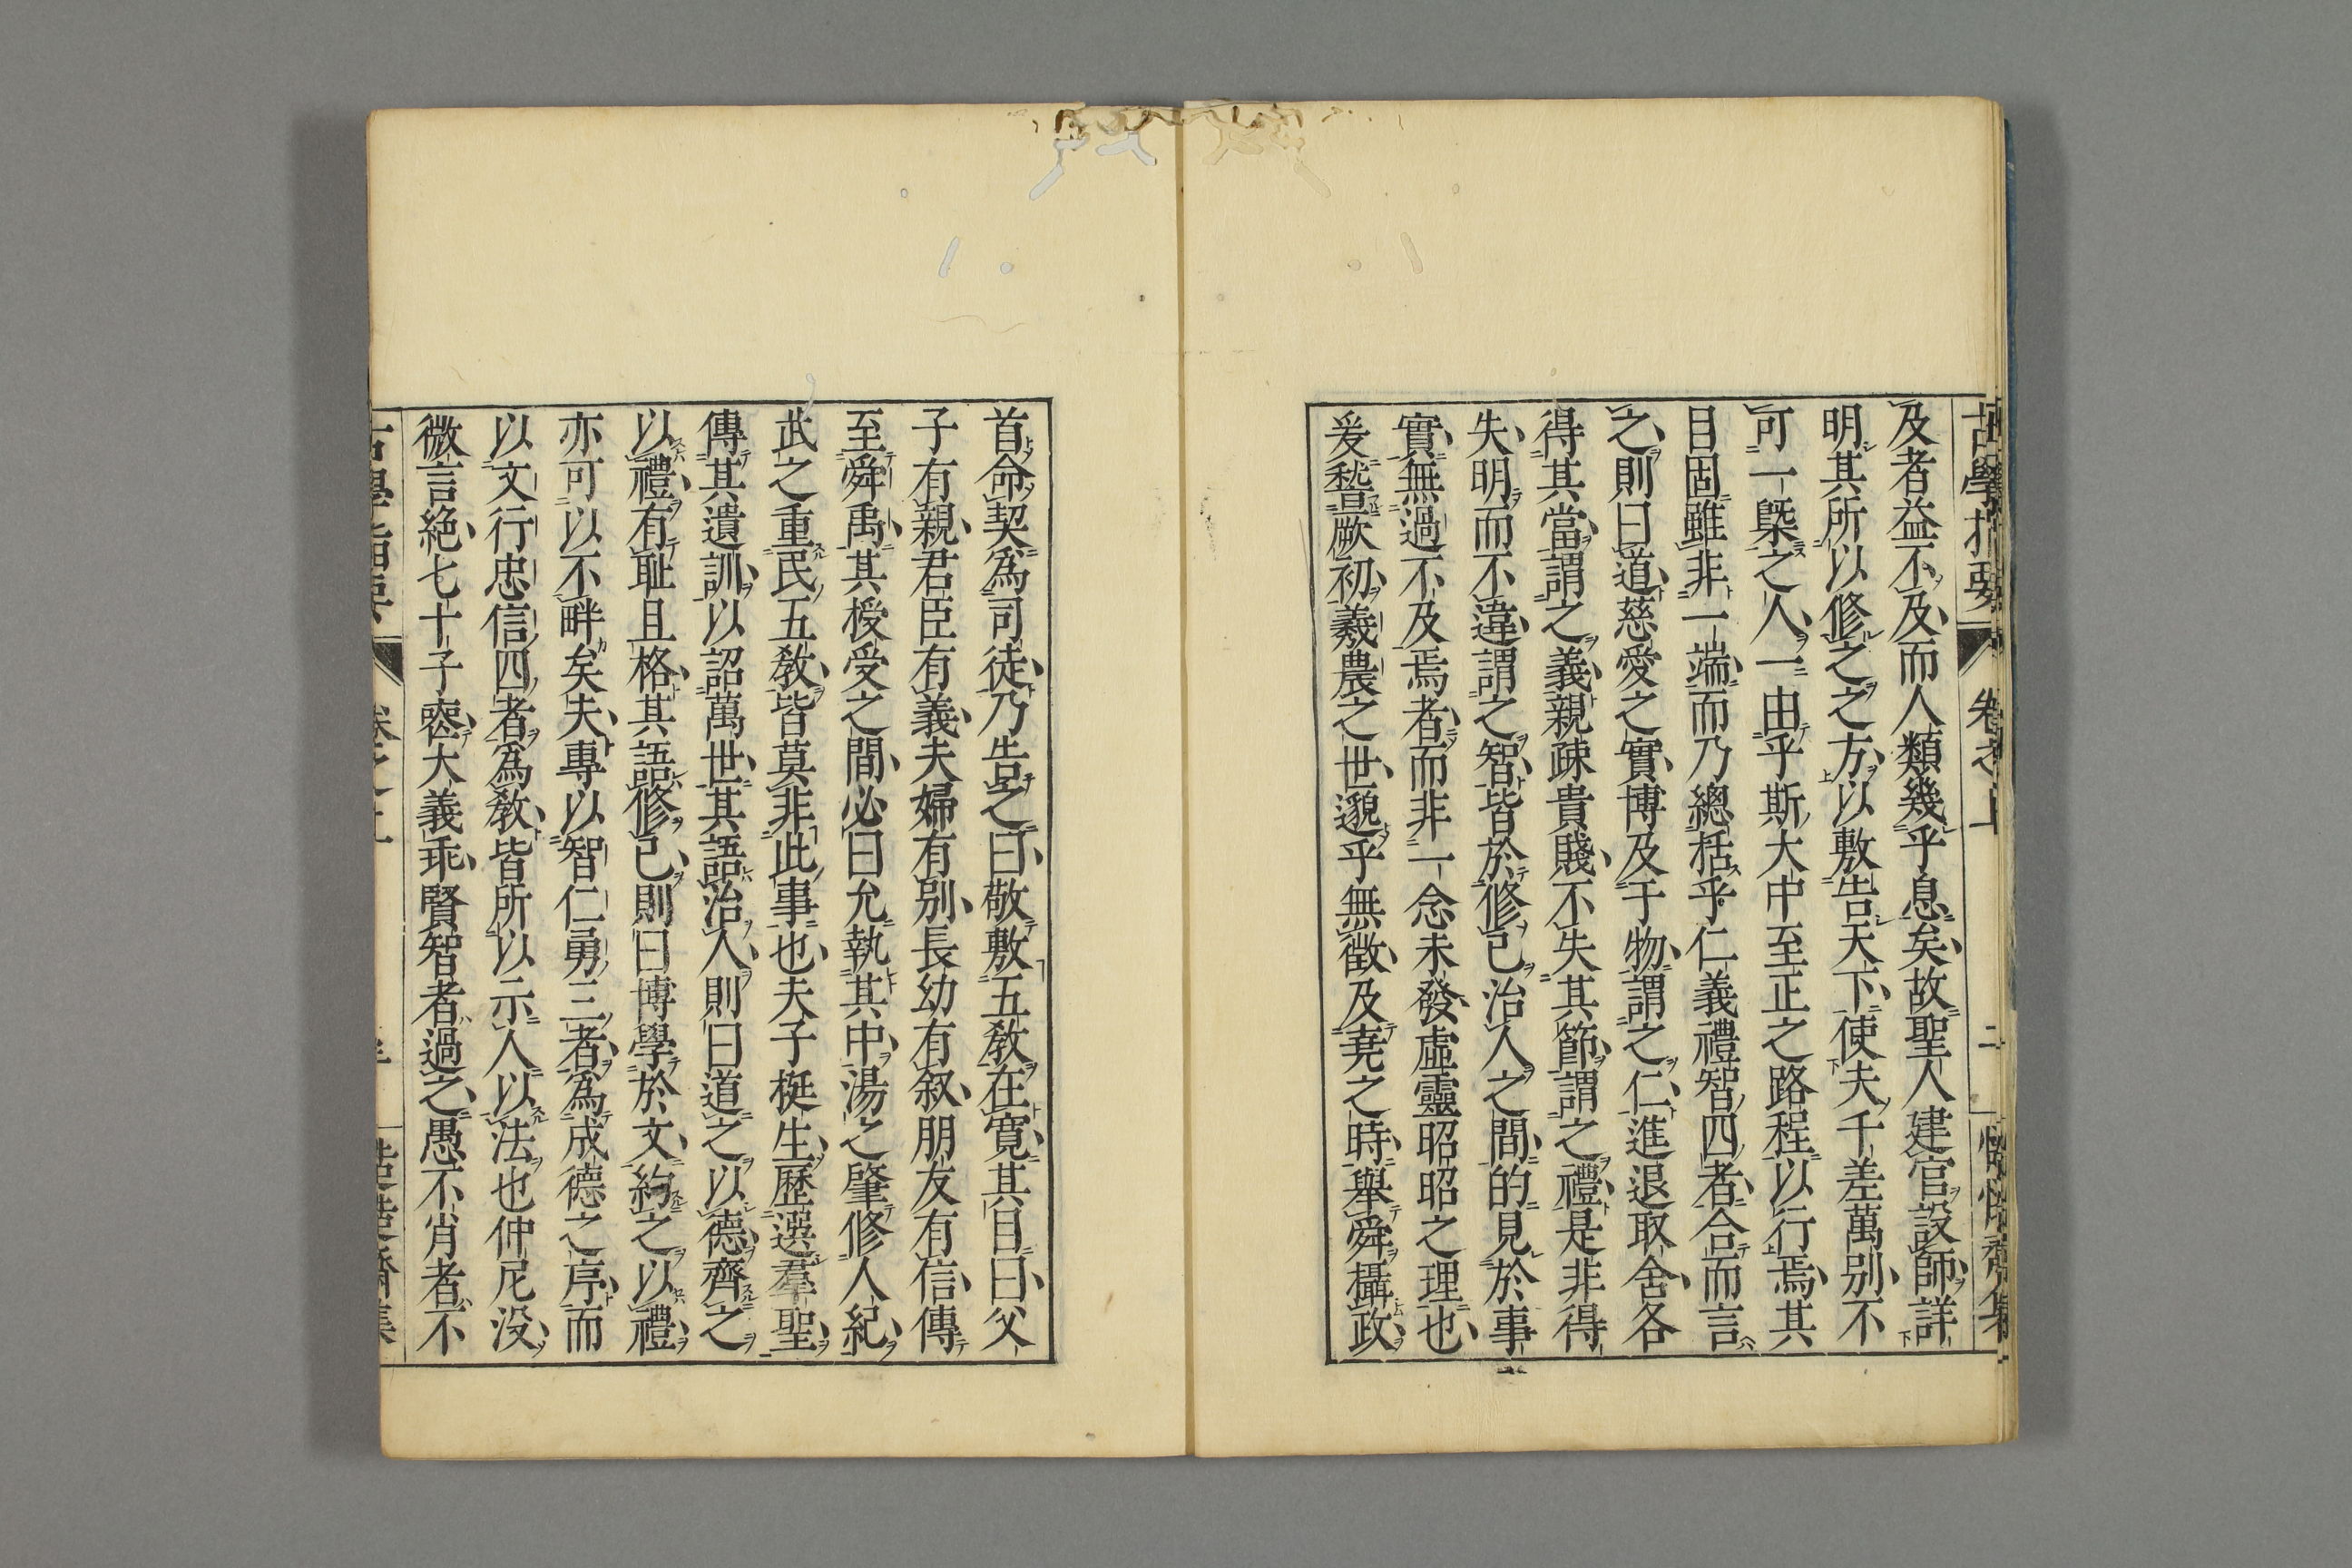 古學指要 卷之上 二
及者益不及而人類幾乎息矣故聖人建官設師詳
明其所以修之之方以敷告天下使夫千差萬別不
可一槩之人一由乎斯大中至正之路程以行焉其
目固雖非一端而乃總栝乎仁義禮智四者合而言
之則曰道慈愛之實博及于物謂之仁進退取舍各
得其當謂之義親疎貴賤不失其節謂之禮是非得
失明而不違謂之智皆於修己治人之間的見於事
實無過不及焉者而非一念未發虛靈昭昭之理也
爰嵆厥初羲農之世邈乎無徵及堯之時舉舜攝政
首命契爲司徒乃告之曰敬敷五敎在寬其目曰父
子有親君臣有義夫婦有別長幼有叙朋友有信傳
至舜禹其授受之間必曰允執其中湯之肇修人紀
武之重民五敎皆莫非此事也夫子挺生歷選羣聖
傳其遺訓以詔萬世其語治人則曰道之以德齊之
以禮有耻且格其語修己則曰博學於文約之以禮
亦可以不畔矣夫專以智仁勇三者爲成德之序而
以文行忠信四者爲敎皆所以示人以法也仲尼没
微言絕七十子喪大義乖賢智者過之愚不肖者不